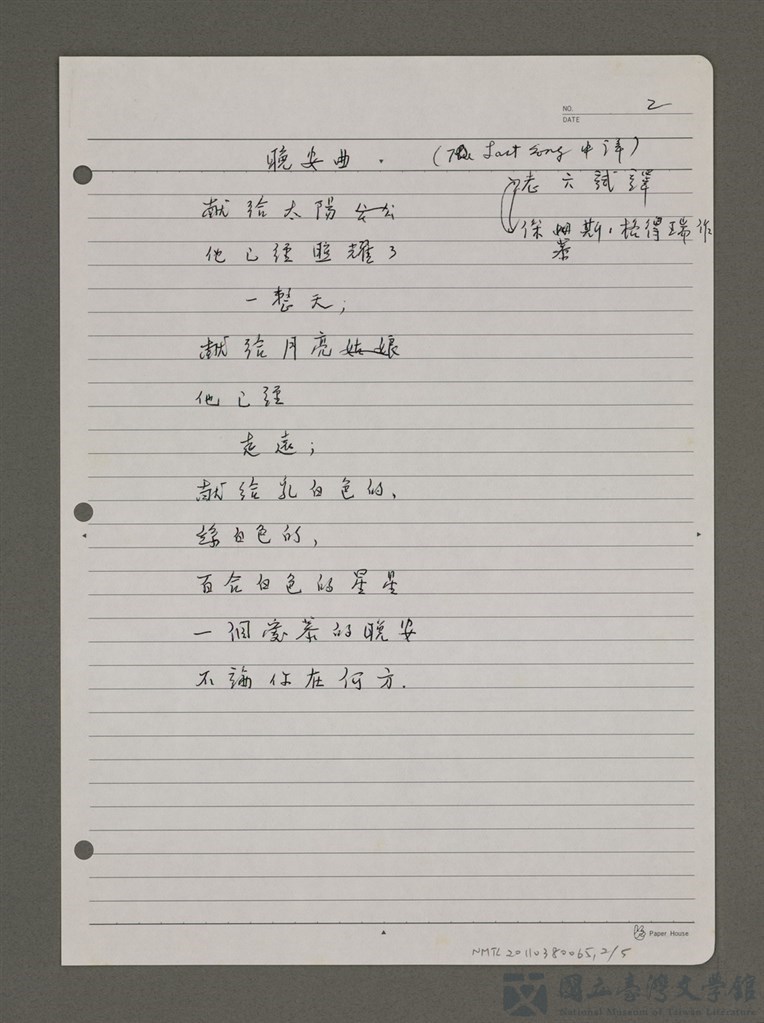 NO. 2
DATE
晚安曲. (The Last Song 中譯)
老六試譯
献給太陽公公
保姆斯·格得瑞作
慕
他已經照耀了
一整天;
献給月亮姑娘
他已經
走遠;
献給乳白色的,
綠白色的,
百合白色的星星
一個愛慕的晚安
不論你在何方.
Paper House
NMTL20110380065,2/5
國立臺灣文學館
National Museum of Taiwan Literature